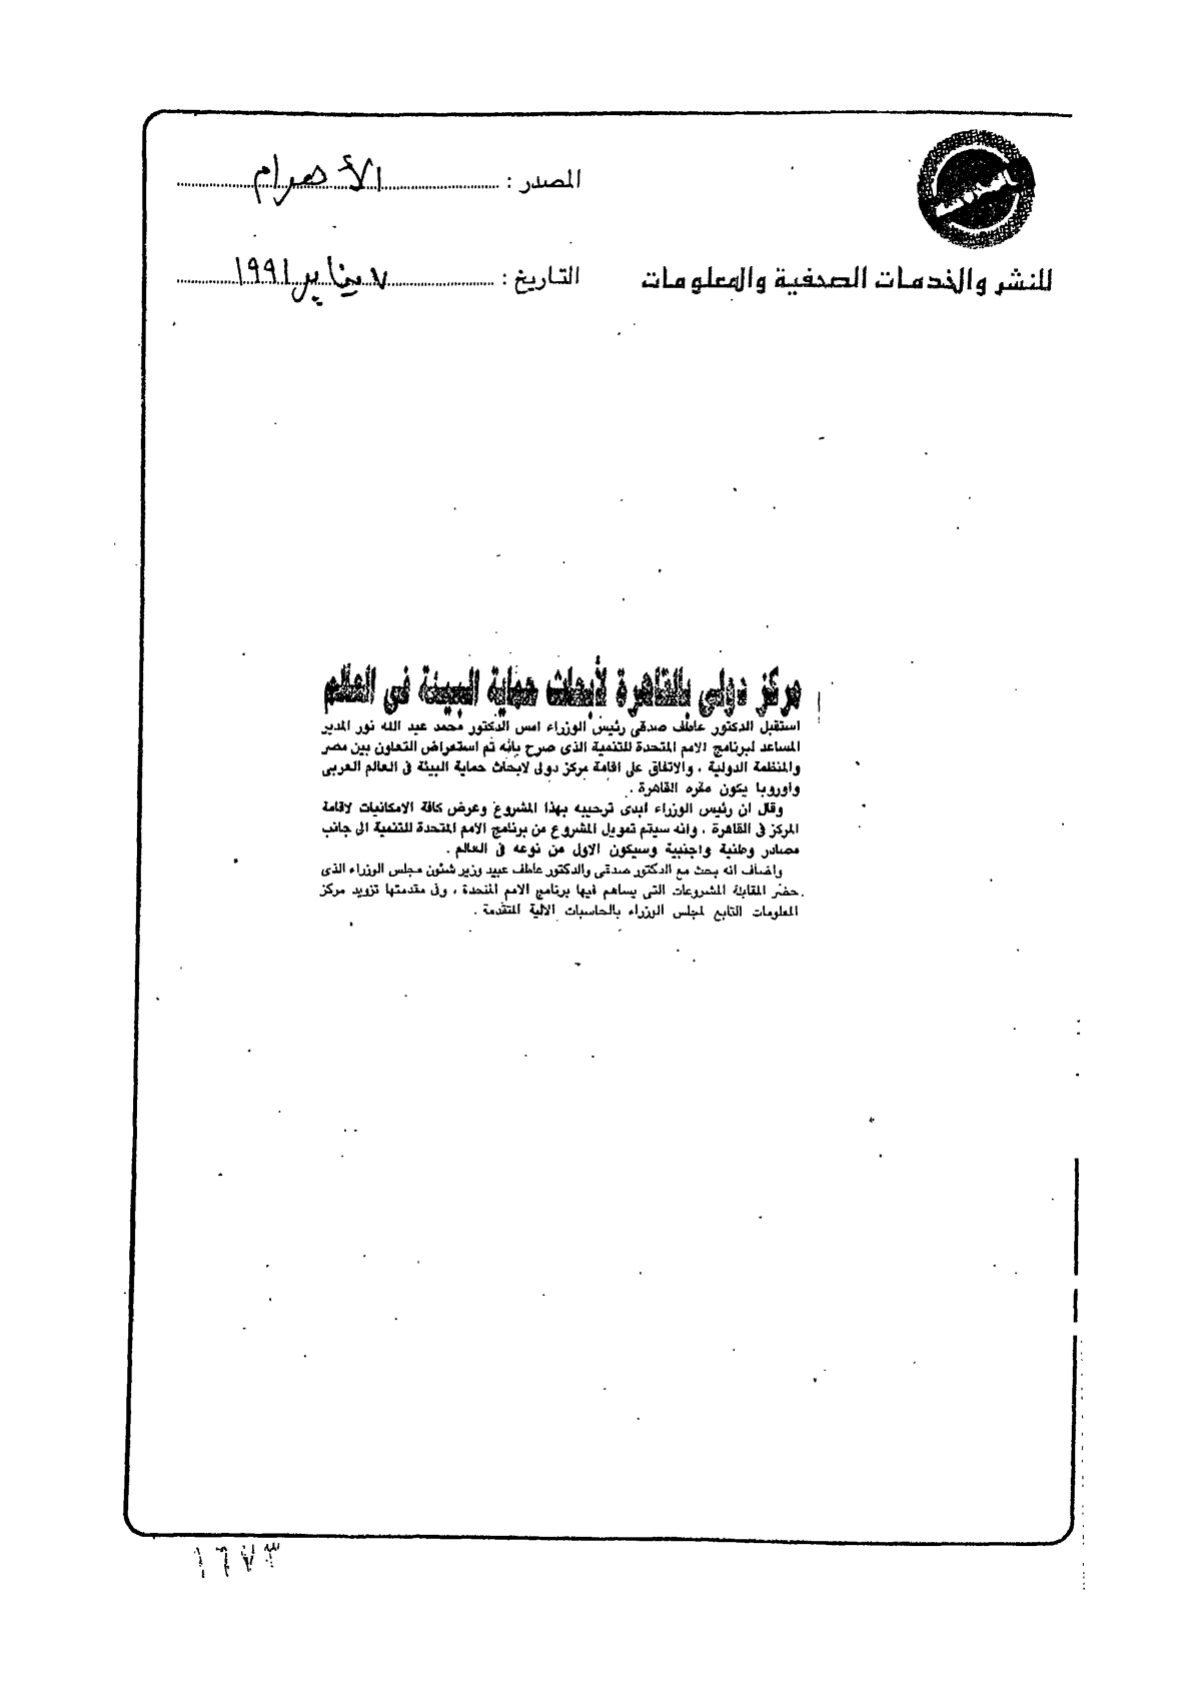 المصدر : الأهرام
للنشر والخدمات الصحفية والمعلومات
التاريخ : ٧ يناير ١٩٩١
مركز دولى بالقاهرة لأبحاث حماية البيئة فى العالم
استقبل الدكتور عاطف صدقى رئيس الوزراء امس الدكتور محمد عبد الله نور المدير
المساعد لبرنامج الامم المتحدة للتنمية الذى صرح بانه تم استعراض التعاون بين مصر
والمنظمة الدولية ، والاتفاق على اقامة مركز دولى لابحاث حماية البيئة فى العالم العربى
واوروبا يكون مقره القاهرة .
وقال ان رئيس الوزراء ابدى ترحيبه بهذا المشروع وعرض كافة الامكانيات لاقامة
المركز فى القاهرة ، وانه سيتم تمويل المشروع من برنامج الامم المتحدة للتنمية الى جانب
مصادر وطنية واجنبية وسيكون الاول من نوعه فى العالم .
واضاف انه بحث مع الدكتور صدقى والدكتور عاطف عبيد وزير شئون مجلس الوزراء الذى
حضر المقابلة المشروعات التى يساهم فيها برنامج الامم المتحدة ، وفى مقدمتها تزويد مركز
المعلومات التابع لمجلس الوزراء بالحاسبات الالية المتقدمة .
١٦٧٣